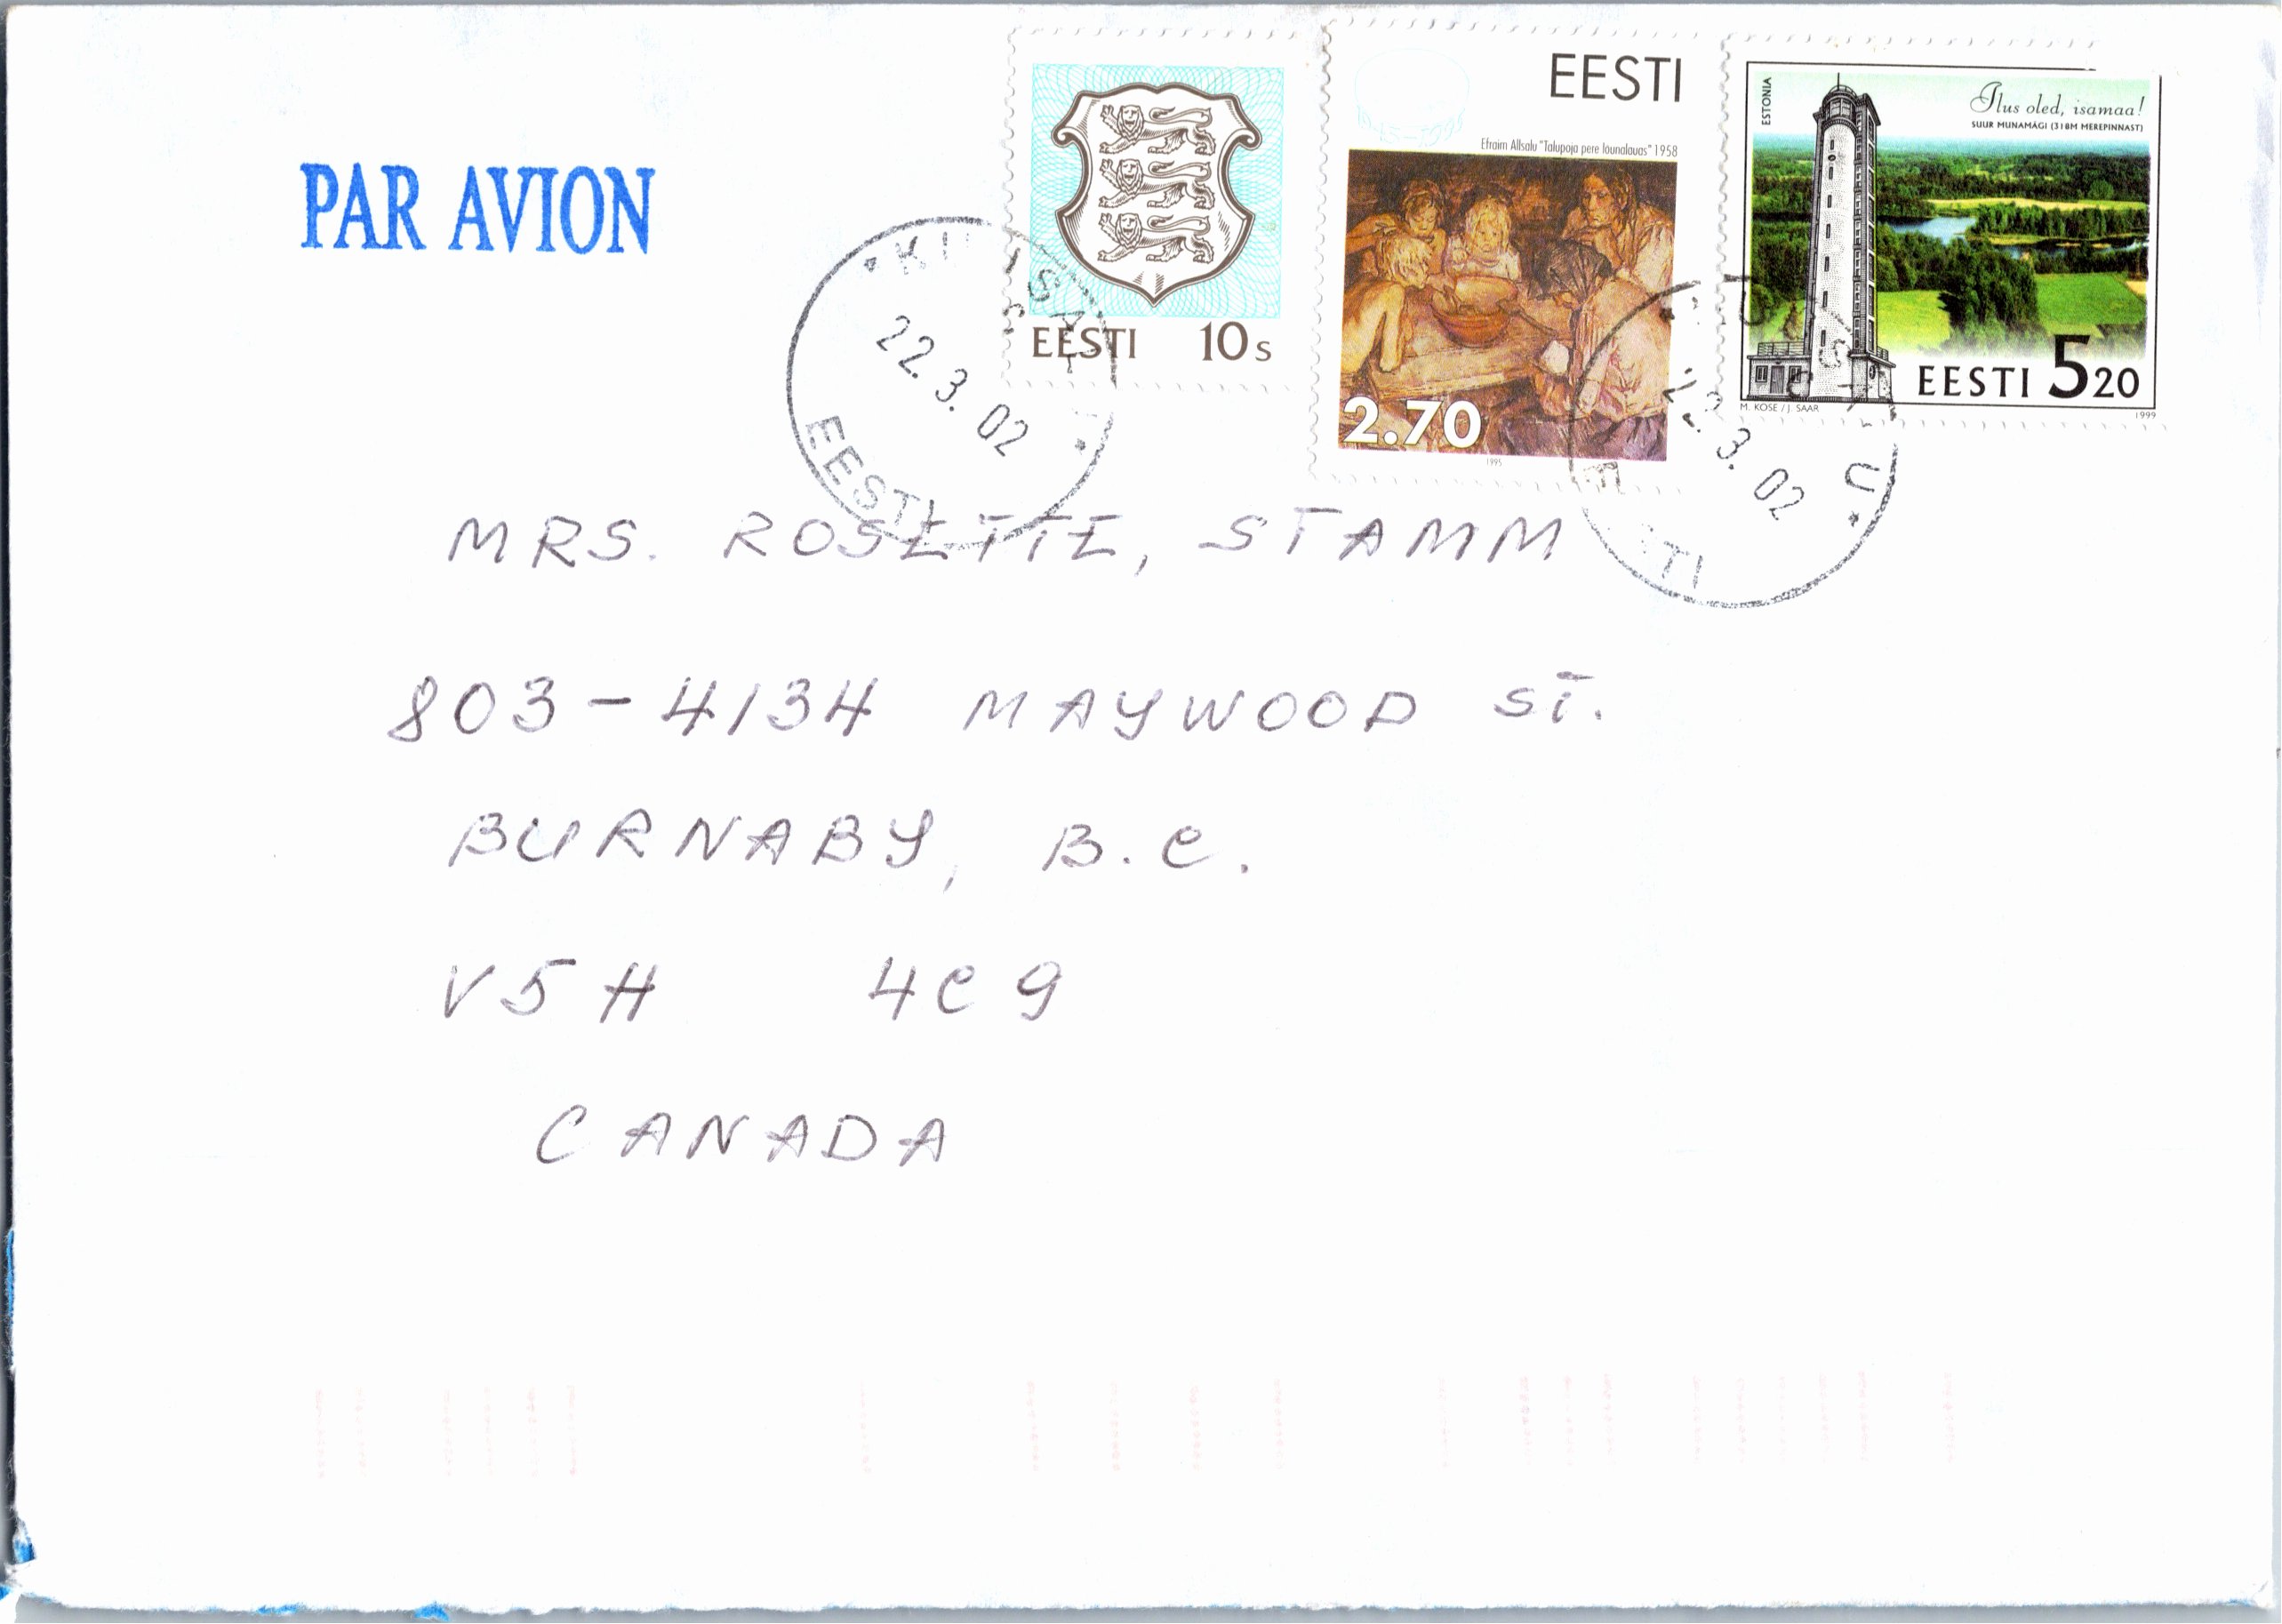 PAR AVION
EESTI 10s
EESTI
Efraim Allsalu "Talupoja pere lõunalauas" 1958
2.70
1995
ESTONIA
Ilus oled, isamaa!
SUUR MUNAMÄGI (318M MEREPINNAST)
EESTI 5 20
M. KOSE / J. SAAR
1999
22.3.02
EESTI
22.3.02
MRS. ROSETTE, STAMM
803-4134 MAYWOOD ST.
BURNABY, B.C.
V5H 4C9
CANADA